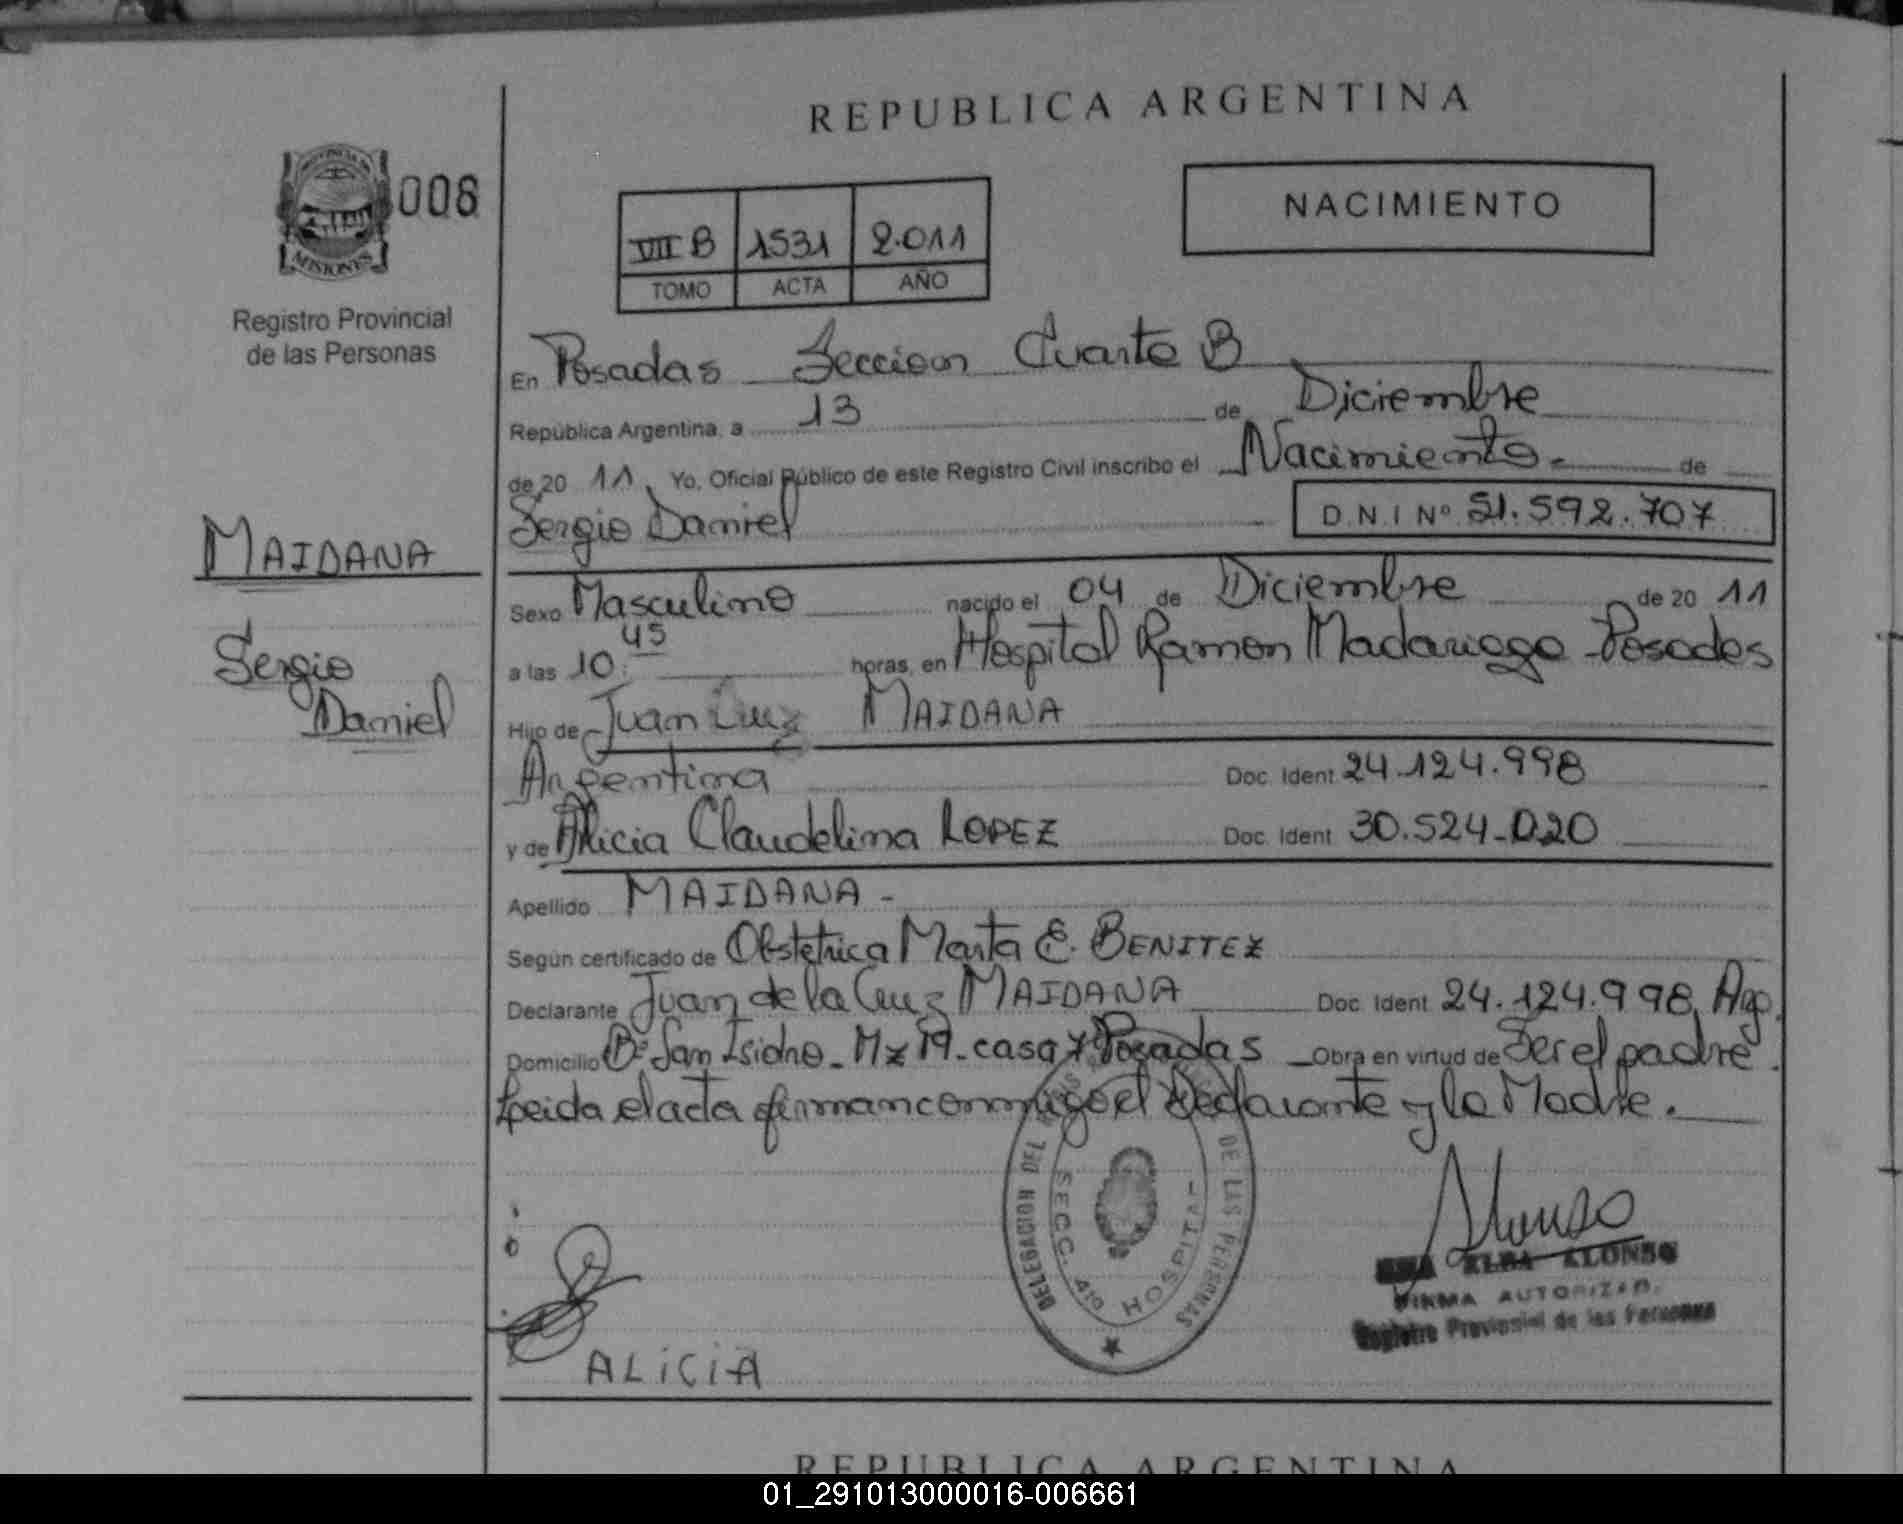 REPUBLICA ARGENTINA
PROVINCIA DE
MISIONES
008
Registro Provincial
de las Personas
NACIMIENTO
VII B 1531 2.011
TOMO ACTA AÑO
En Posadas Seccion Cuarta B
República Argentina, a 13 de Diciembre
de 20 11, Yo, Oficial Público de este Registro Civil inscribo el Nacimiento.- de
Sergio Daniel D.N.I Nº 51.592.707
MAIDANA
Sergio
Daniel
Sexo Masculino nacido el 04 de Diciembre de 20 11
a las 10:45 horas, en Hospital Ramon Madariaga - Posadas
Hijo de Juan Cruz MAIDANA
Argentina Doc. Ident. 24.124.998
y de Alicia Claudelina LOPEZ Doc. Ident. 30.524.020
Apellido MAIDANA -
Según certificado de Obstetrica Marta E. BENITEZ
Declarante Juan de la Cruz MAIDANA Doc. Ident. 24.124.998, Arg.
Domicilio Bº San Isidro - Mz 19 - casa 7 Posadas - Obra en virtud de Ser el padre.
Leida el acta firman conmigo el Declarante y la Madre.
DELEGACION DEL DE LAS PERSONAS
SECC. 4ta HOSPITAL
Alonso
ELBA ALONSO
FIRMA AUTORIZAD.
Registro Provincial de las Personas
ALiCiA
REPUBLICA ARGENTINA
01_291013000016-006661